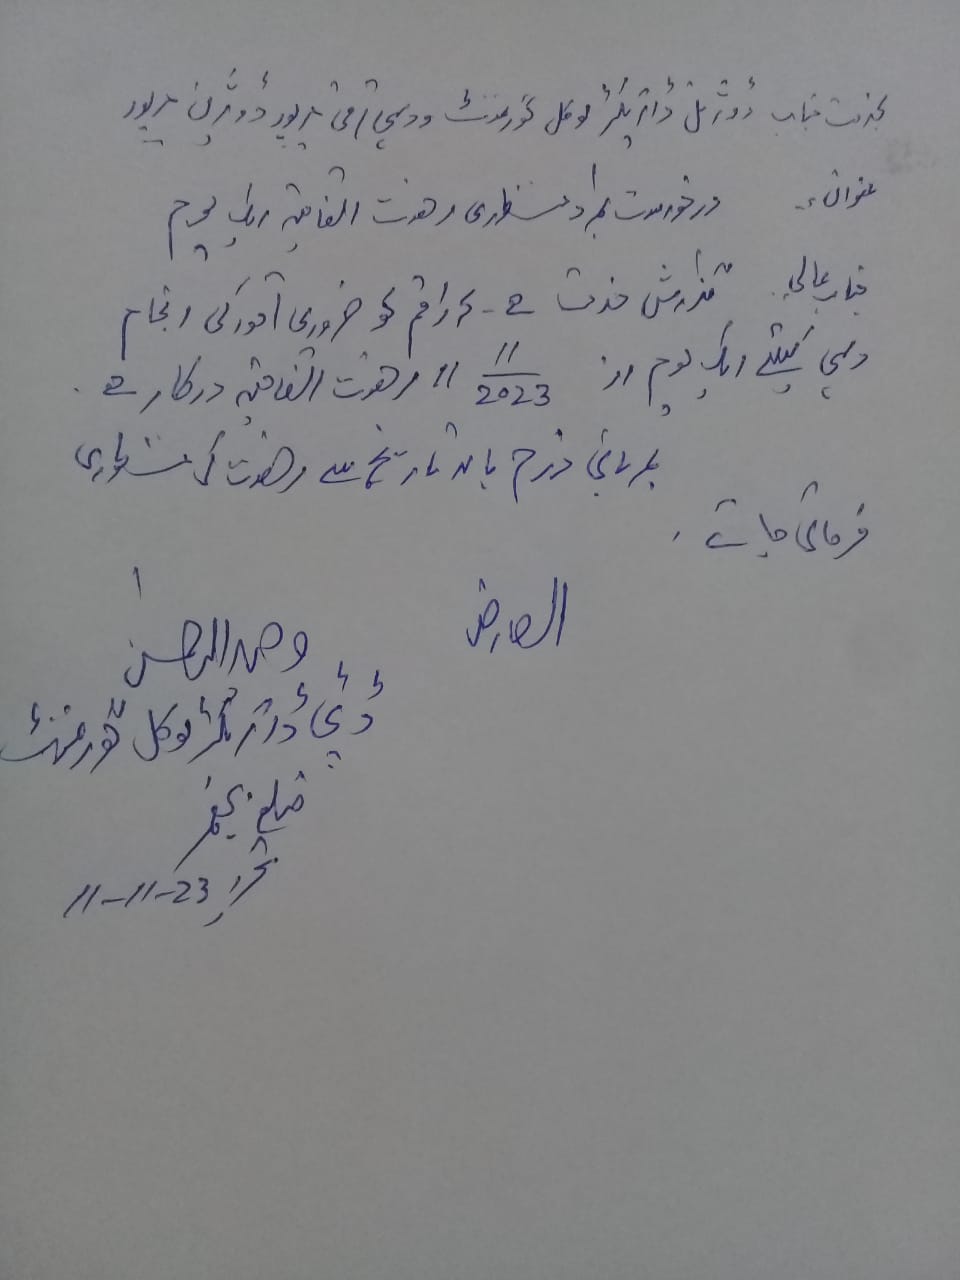 بخدمت جناب ڈویژنل ڈائریکٹر لوکل گورنمنٹ ودیہی ترقی میرپور ڈویژن میرپور
عنوان:۔ درخواست بمراد منظوری رخصت اتفاقیہ ایک یوم
جناب عالی۔ گذارش خدمت ہے۔ کہ راقم کو ضروری امور کی انجام
دہی کیلئے ایک یوم از 11 11/2023 رخصت اتفاقیہ درکار ہے۔
بمہربانی درج بالا تاریخ سے رخصت کی منظوری
فرمائی جائے۔
العارض
وحید الحسن
ڈپٹی ڈائریکٹر لوکل گورنمنٹ
ضلع بھمبر
تحریر 11-11-23